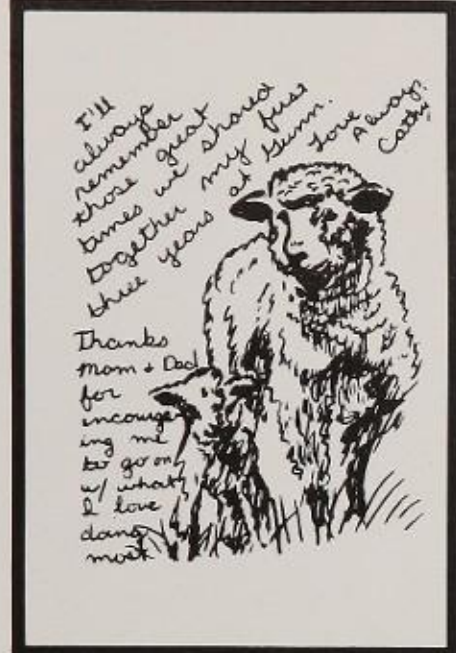 I'll
always
remember
those great
times we shared
together my first
three years at Gunn.
Love
Always,
Cathy
Thanks
Mom + Dad
for
encourag
ing me
to go on
w/ what
I love
doing
most